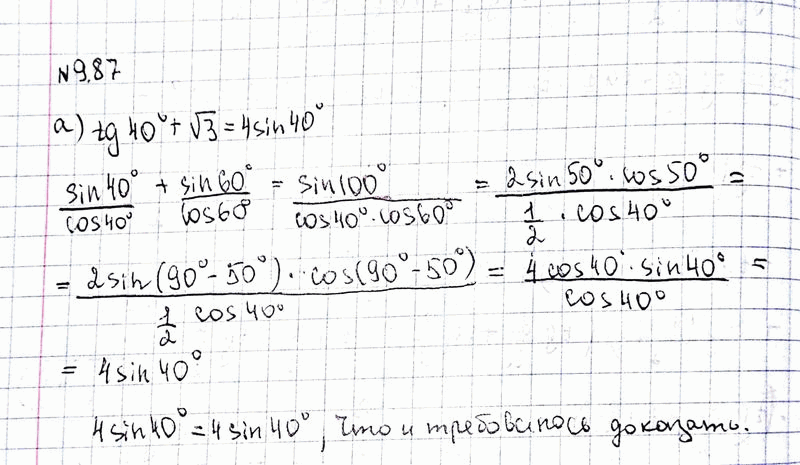 №9.87
а) tg 40° + √3 = 4sin 40°
sin 40°/cos 40° + sin 60°/cos 60° = sin 100°/(cos 40° · cos 60°) = 2sin 50° · cos 50°/(1/2 · cos 40°) =
= 2sin(90° - 50°) · cos(90° - 50°)/(1/2 cos 40°) = 4 cos 40° · sin 40°/cos 40° =
= 4 sin 40°
4 sin 40° = 4 sin 40°, что и требовалось доказать.